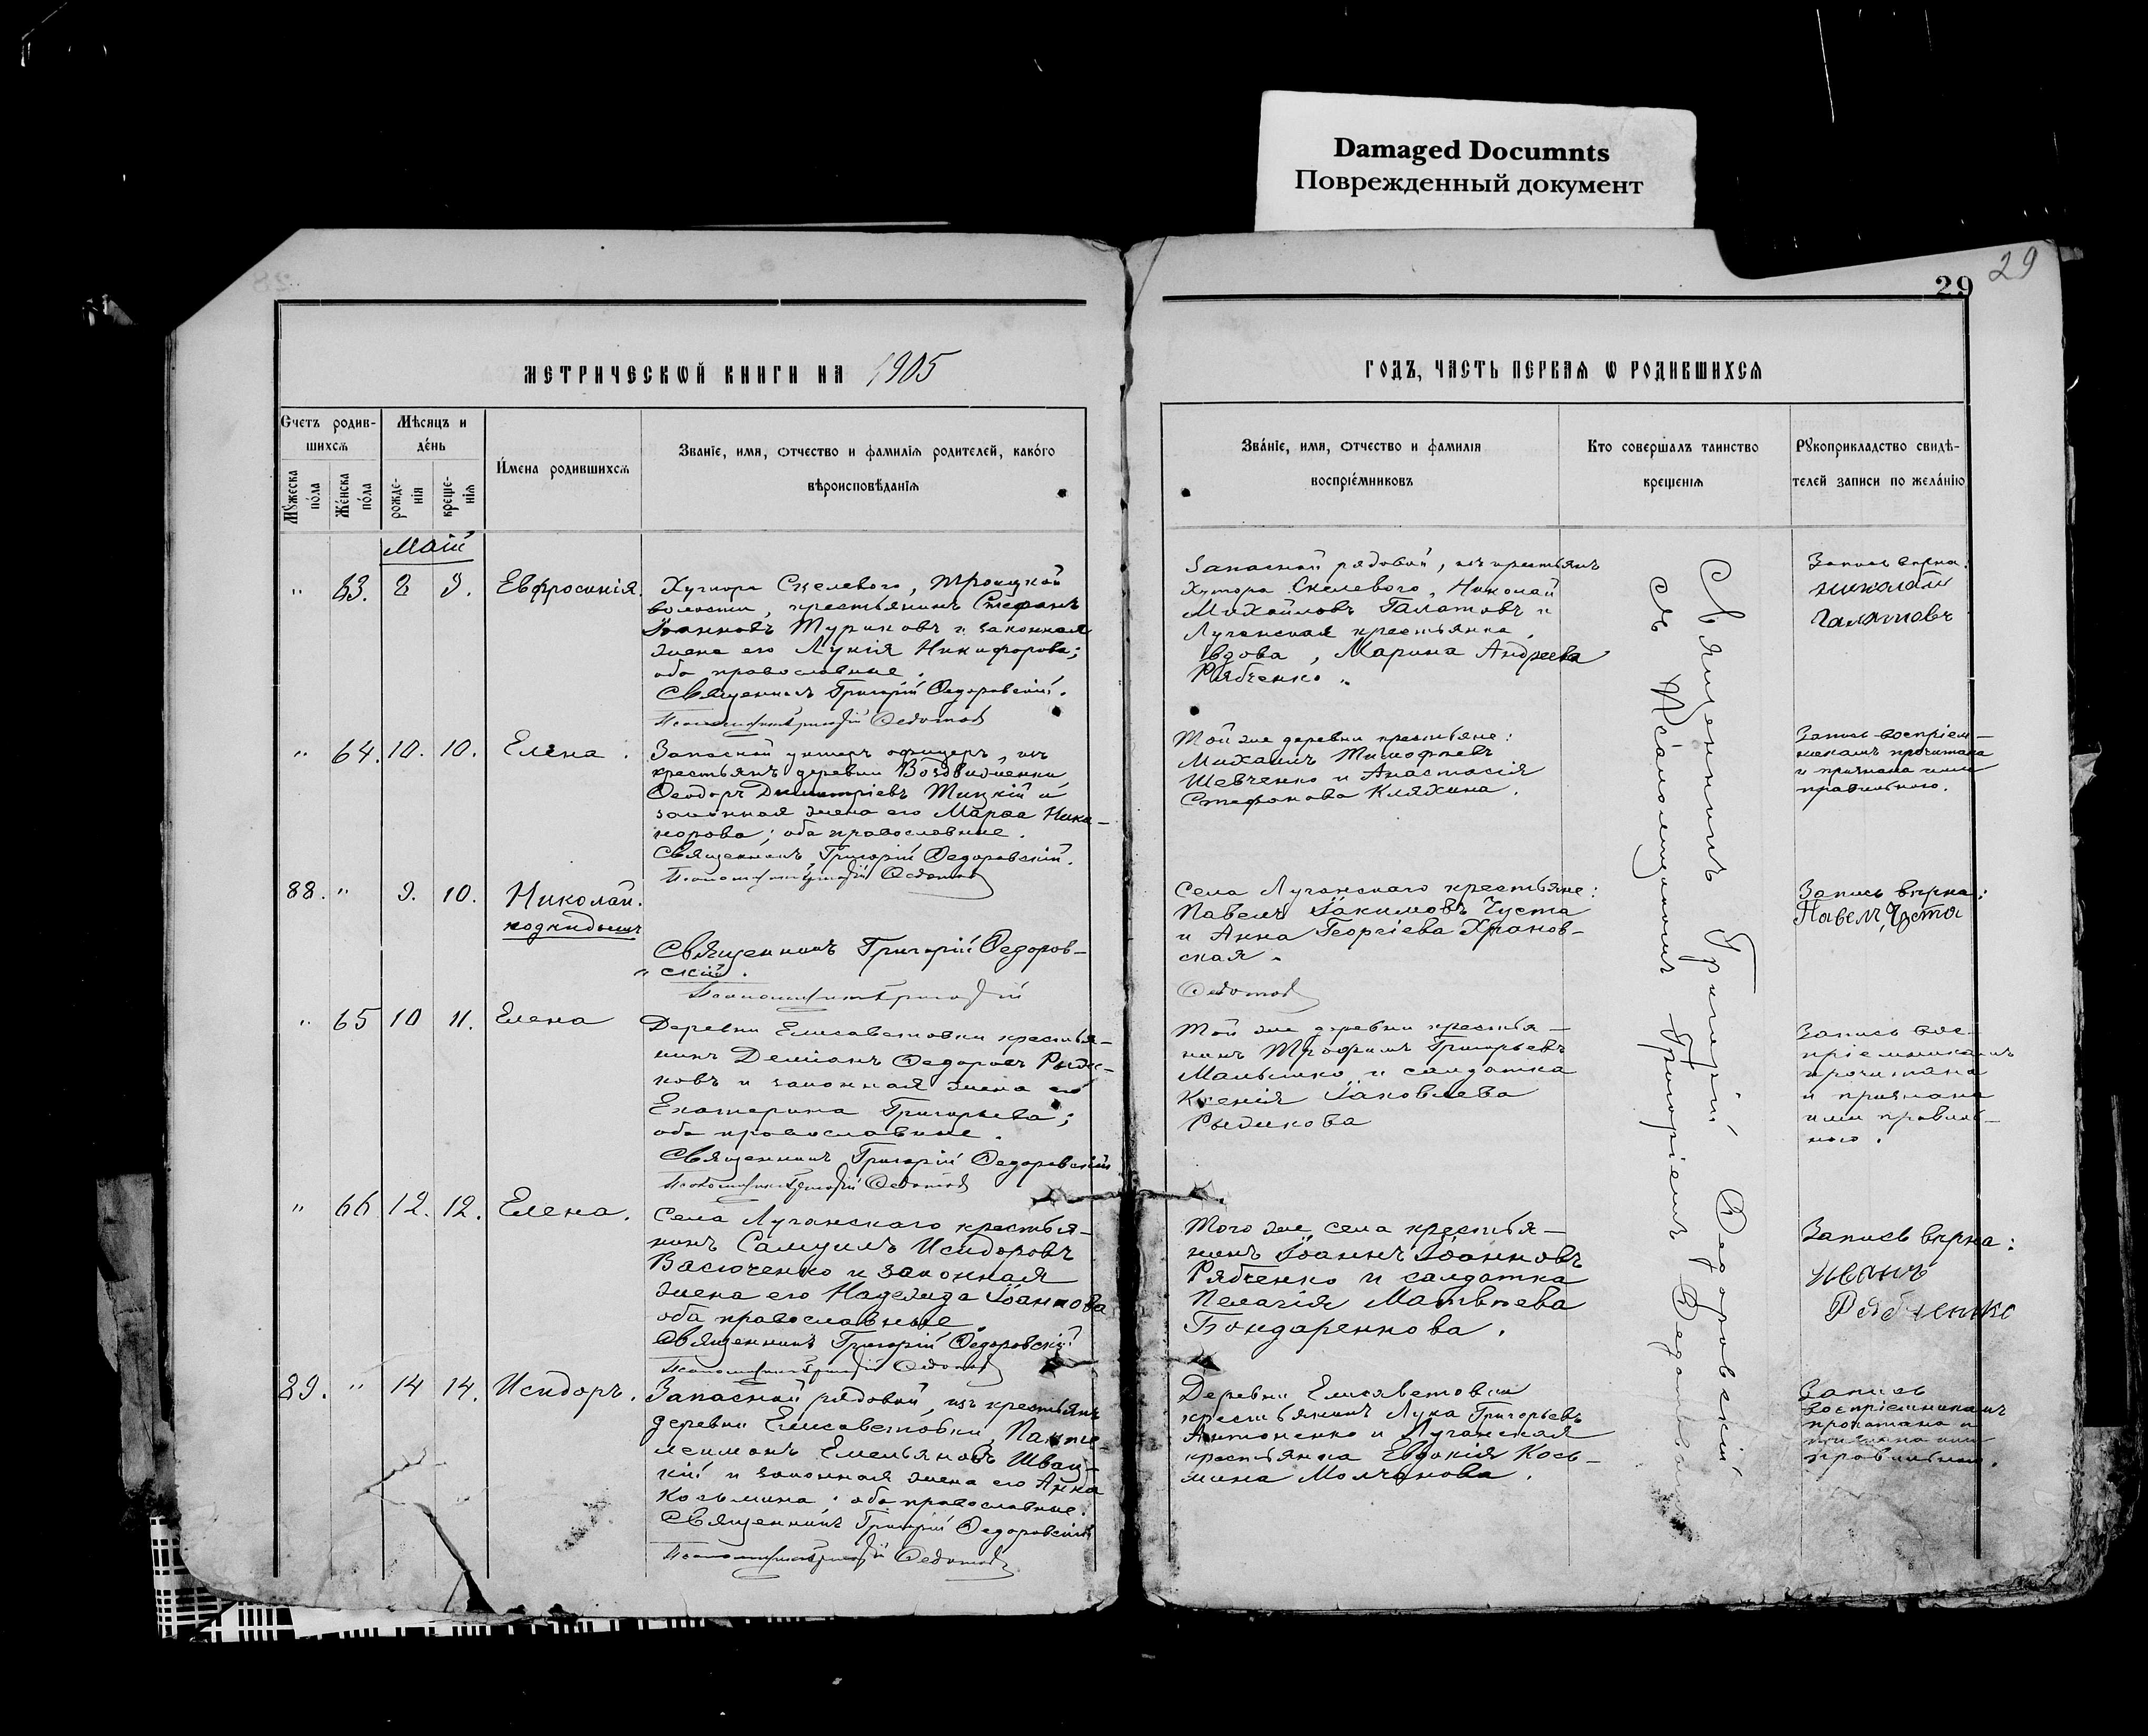 Damaged Documnts
Поврежденный документ
29
29
МЕТРИЧЕСКѠЙ КНИГИ НА 1905
ГОДЪ, ЧАСТЬ ПЕРВАЯ Ѡ РОДИВШИХСЯ
Счетъ родив-
шихся
Мѣсяцъ и
де́нь
И́мена родившихся
Званіе, имя, отчество и фамилія родителей, како́го
вѣроисповѣданія
Мꙋжеска по́ла
Же́нска по́ла
рожде-
нія
креще-
нія
Зва́ніе, имя, отчество и фамилія
воспріе́мниковъ
Кто соверша́лъ таинство
крещенія
Рꙋкоприкладство свидѣ-
телей записи по жела́нію
Май
" 63. 8 9. Евфросинія.
Хутора Скелевого, Троицкой
волости, крестьянинъ Стефанъ
Іоанновъ Туриковъ и законная
жена его Лукія Никифорова;
оба православные.
Священникъ Григорій Ѳедоровскій.
Псаломщикъ Григорій Ѳедотов
Запасной рядовой, изъ крестьянъ
Хутора Скелевого, Николай
Михайловъ Галатовъ и
Луганская крестьянка,
вдова, Марина Андреева
Рябченко.
Запись вѣрна:
Николай
Галатовъ
" 64. 10. 10. Елена.
Запасной унтеръ офицеръ, изъ
крестьянъ деревни Воздвиженки
Ѳеодоръ Димитріевъ Тицкій и
законная жена его Марѳа Ника-
норова; оба православные.
Священникъ Григорій Ѳедоровскій.
Псаломщикъ Григорій Ѳедотов
Той же деревни крестьяне:
Михаилъ Тимофѣевъ
Шевченко и Анастасія
Стефанова Кляхина.
Запись воспріем-
никамъ прочитана
и признана ими
правильного.
88. " 9. 10. Николай.
подкидышъ
Священникъ Григорій Ѳедоров-
скій.
Псаломщикъ Григорій
Села Луганскаго крестьяне:
Павелъ Іакимовъ Чуста
и Анна Георгіева Хранов-
ская.
Ѳедотов
Запись вѣрна:
Павелъ Чуста
" 65 10 11. Елена
Деревни Елисаветовки крестья-
нинъ Деміанъ Ѳедоровъ Рыж-
ковъ и законная жена его
Екатерина Григорьева;
оба православные.
Священникъ Григорій Ѳедоровскій
Псаломщикъ Григорій Ѳедотов
Той же деревни крестья-
нинъ Трофимъ Григорьевъ
Малышко и солдатка
Ксенія Іаковлева
Рыжкова
Запись вос-
пріемникамъ
прочитана
и признана
ими правиль-
ного.
" 66 12. 12. Елена.
Села Луганскаго крестья-
нинъ Самуилъ Исидоровъ
Васюченко и законная
жена его Надежда Іоаннова
оба православные.
Священникъ Григорій Ѳедоровскій
Псаломщикъ Григорій Ѳедотов
Того же села крестья-
нинъ Іоаннъ Іоанновъ
Рябченко и солдатка
Пелагія Матвѣева
Бондаренкова.
Запись вѣрна:
Иванъ
Рябченко
89. " 14 14. Исидоръ.
Запасной рядовой, изъ крестьянъ
деревни Елисаветовки, Панте-
леимонъ Емельяновъ
и законная жена его Анна
Козьмина; оба православные.
Священникъ Григорій Ѳедоровскій
Псаломщикъ Григорій Ѳедотов
Деревни Елисаветовки
крестьянинъ Лука Григорьевъ
Антоненко и Луганская
крестьянка Евдокія Кось-
мина Молчанова.
Запись
воспріемникамъ
прочитана и
признана ими
правильного.
Священникъ Григорій Ѳедоровскій
съ Псаломщикомъ Григоріемъ Ѳедотовымъ